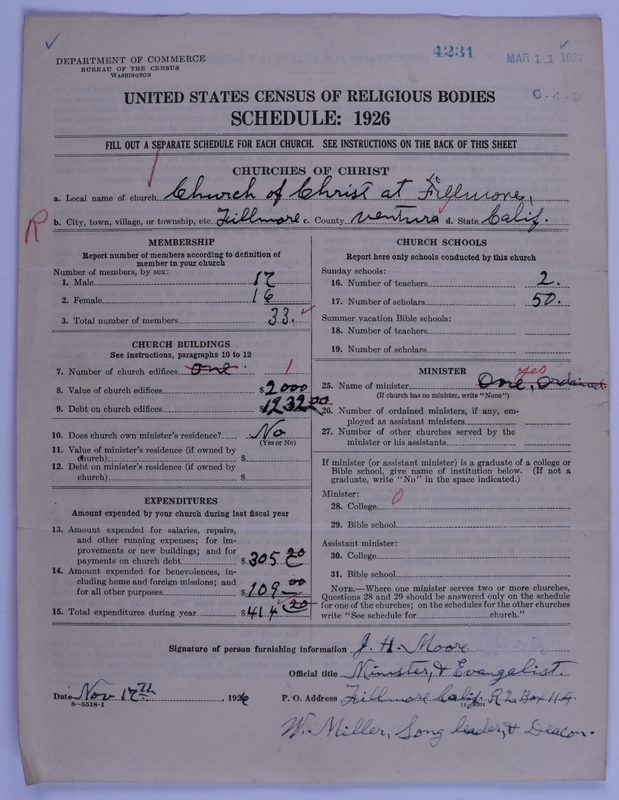 4231
MAR 11 1927
DEPARTMENT OF COMMERCE
BUREAU OF THE CENSUS
WASHINGTON
UNITED STATES CENSUS OF RELIGIOUS BODIES
SCHEDULE: 1926
FILL OUT A SEPARATE SCHEDULE FOR EACH CHURCH. SEE INSTRUCTIONS ON THE BACK OF THIS SHEET
CHURCHES OF CHRIST
a. Local name of church Church of Christ at Fillmore,
R b. City, town, village, or township, etc. Fillmore c. County Ventura d. State Calif.
MEMBERSHIP
Report number of members according to definition of
member in your church
Number of members, by sex:
1. Male 17
2. Female 16
3. Total number of members 33.
CHURCH BUILDINGS
See instructions, paragraphs 10 to 12
7. Number of church edifices One. 1
8. Value of church edifices $2000
9. Debt on church edifices $1232.00
10. Does church own minister's residence? No
(Yes or No)
11. Value of minister's residence (if owned by
church) $
12. Debt on minister's residence (if owned by
church) $
EXPENDITURES
Amount expended by your church during last fiscal year
13. Amount expended for salaries, repairs,
and other running expenses; for im-
provements or new buildings; and for
payments on church debt $305 20
14. Amount expended for benevolences, in-
cluding home and foreign missions; and
for all other purposes $109 00
15. Total expenditures during year $414 20
CHURCH SCHOOLS
Report here only schools conducted by this church
Sunday schools:
16. Number of teachers 2.
17. Number of scholars 50.
Summer vacation Bible schools:
18. Number of teachers
19. Number of scholars
MINISTER
yes
25. Name of minister One, ordained
(If church has no minister, write "None")
26. Number of ordained ministers, if any, em-
ployed as assistant ministers
27. Number of other churches served by the
minister or his assistants
If minister (or assistant minister) is a graduate of a college or
Bible school, give name of institution below. (If not a
graduate, write "No" in the space indicated.)
Minister:
28. College 0
29. Bible school
Assistant minister:
30. College
31. Bible school
NOTE.—Where one minister serves two or more churches,
Questions 28 and 29 should be answered only on the schedule
for one of the churches; on the schedules for the other churches
write "See schedule for church."
Signature of person furnishing information J. H. Moore
Official title Minister, & Evangelist.
Date Nov 17TH, 1926 P. O. Address Fillmore Calif. R2 Box 11
8—5518-1
W. Miller, Song leader, & Deacon.